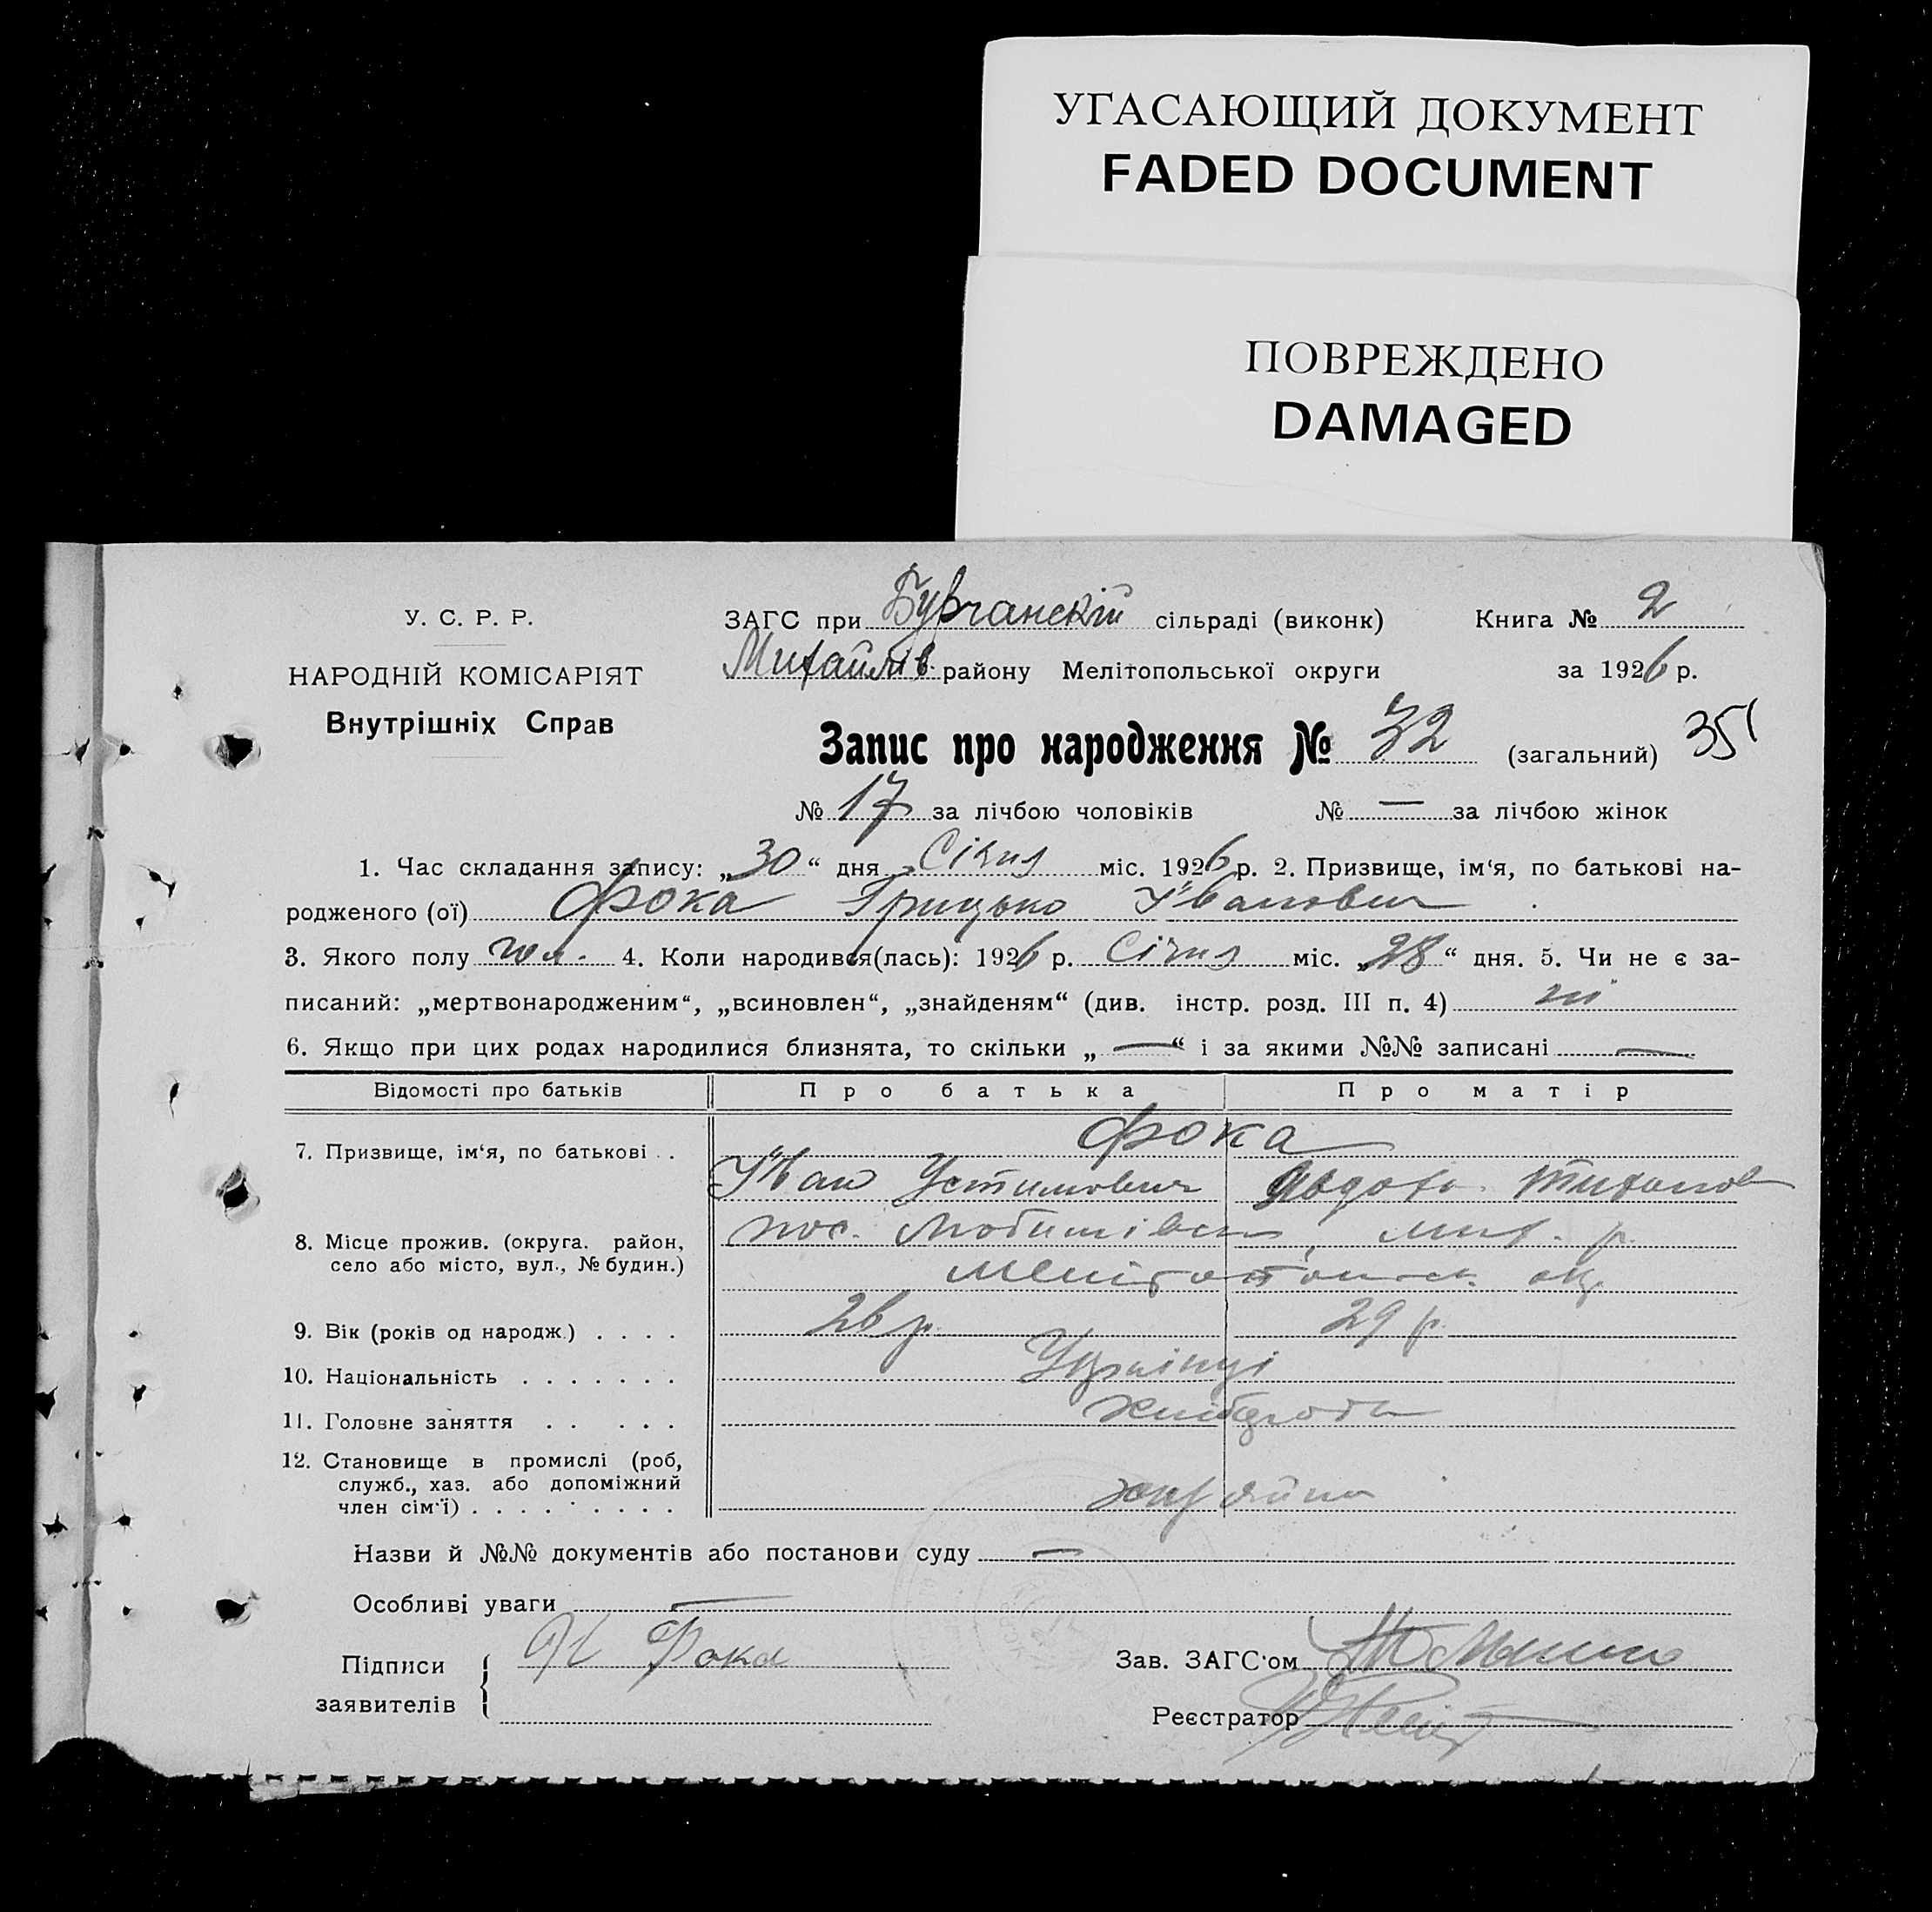 УГАСАЮЩИЙ ДОКУМЕНТ
FADED DOCUMENT
ПОВРЕЖДЕНО
DAMAGED
У. С. Р. Р.
НАРОДНІЙ КОМІСАРІЯТ
Внутрішніх Справ
ЗАГС при Бурчанскій сільраді (виконк) Книга № 2
Михайлів. району Мелітопольської округи за 1926 р.
Запис про народження № 32 (загальний) 351
№ 17 за лічбою чоловіків № — за лічбою жінок
1. Час складання запису: „30“ дня Січня міс. 1926 р. 2. Призвище, ім‘я, по батькові на-
родженого (ої) Фока Грицько Іванович
3. Якого полу чол. 4. Коли народився(лась): 1926 р. Січня міс. „28“ дня. 5. Чи не є за-
писаний: „мертвонародженим“, „всиновлен“, „знайденям“ (див. інстр. розд. III п. 4) ні
6. Якщо при цих родах народилися близнята, то скільки „—“ і за якими №№ записані —
Відомості про батьків Про батька Про матір
7. Призвище, ім‘я, по батькові . . Фока
Іван Устимович Явдоха Тиханов
8. Місце прожив. (округа. район, село або місто, вул., № будин.) пос. Любимівка, мих. р.
Мелітопольск. окр.
9. Вік (років од народж.) . . . . 26 р. 29 р.
10. Національність . . . . . . . Українці
11. Головне заняття . . . . . Хлібороби
12. Становище в промислі (роб,
служб., хаз. або допоміжний
член сім‘ї) . . . . . . . . .
Назви й №№ документів або постанови суду —
Особливі уваги —
Підписи
заявителів
Фока
Зав. ЗАГС‘ом
Реєстратор